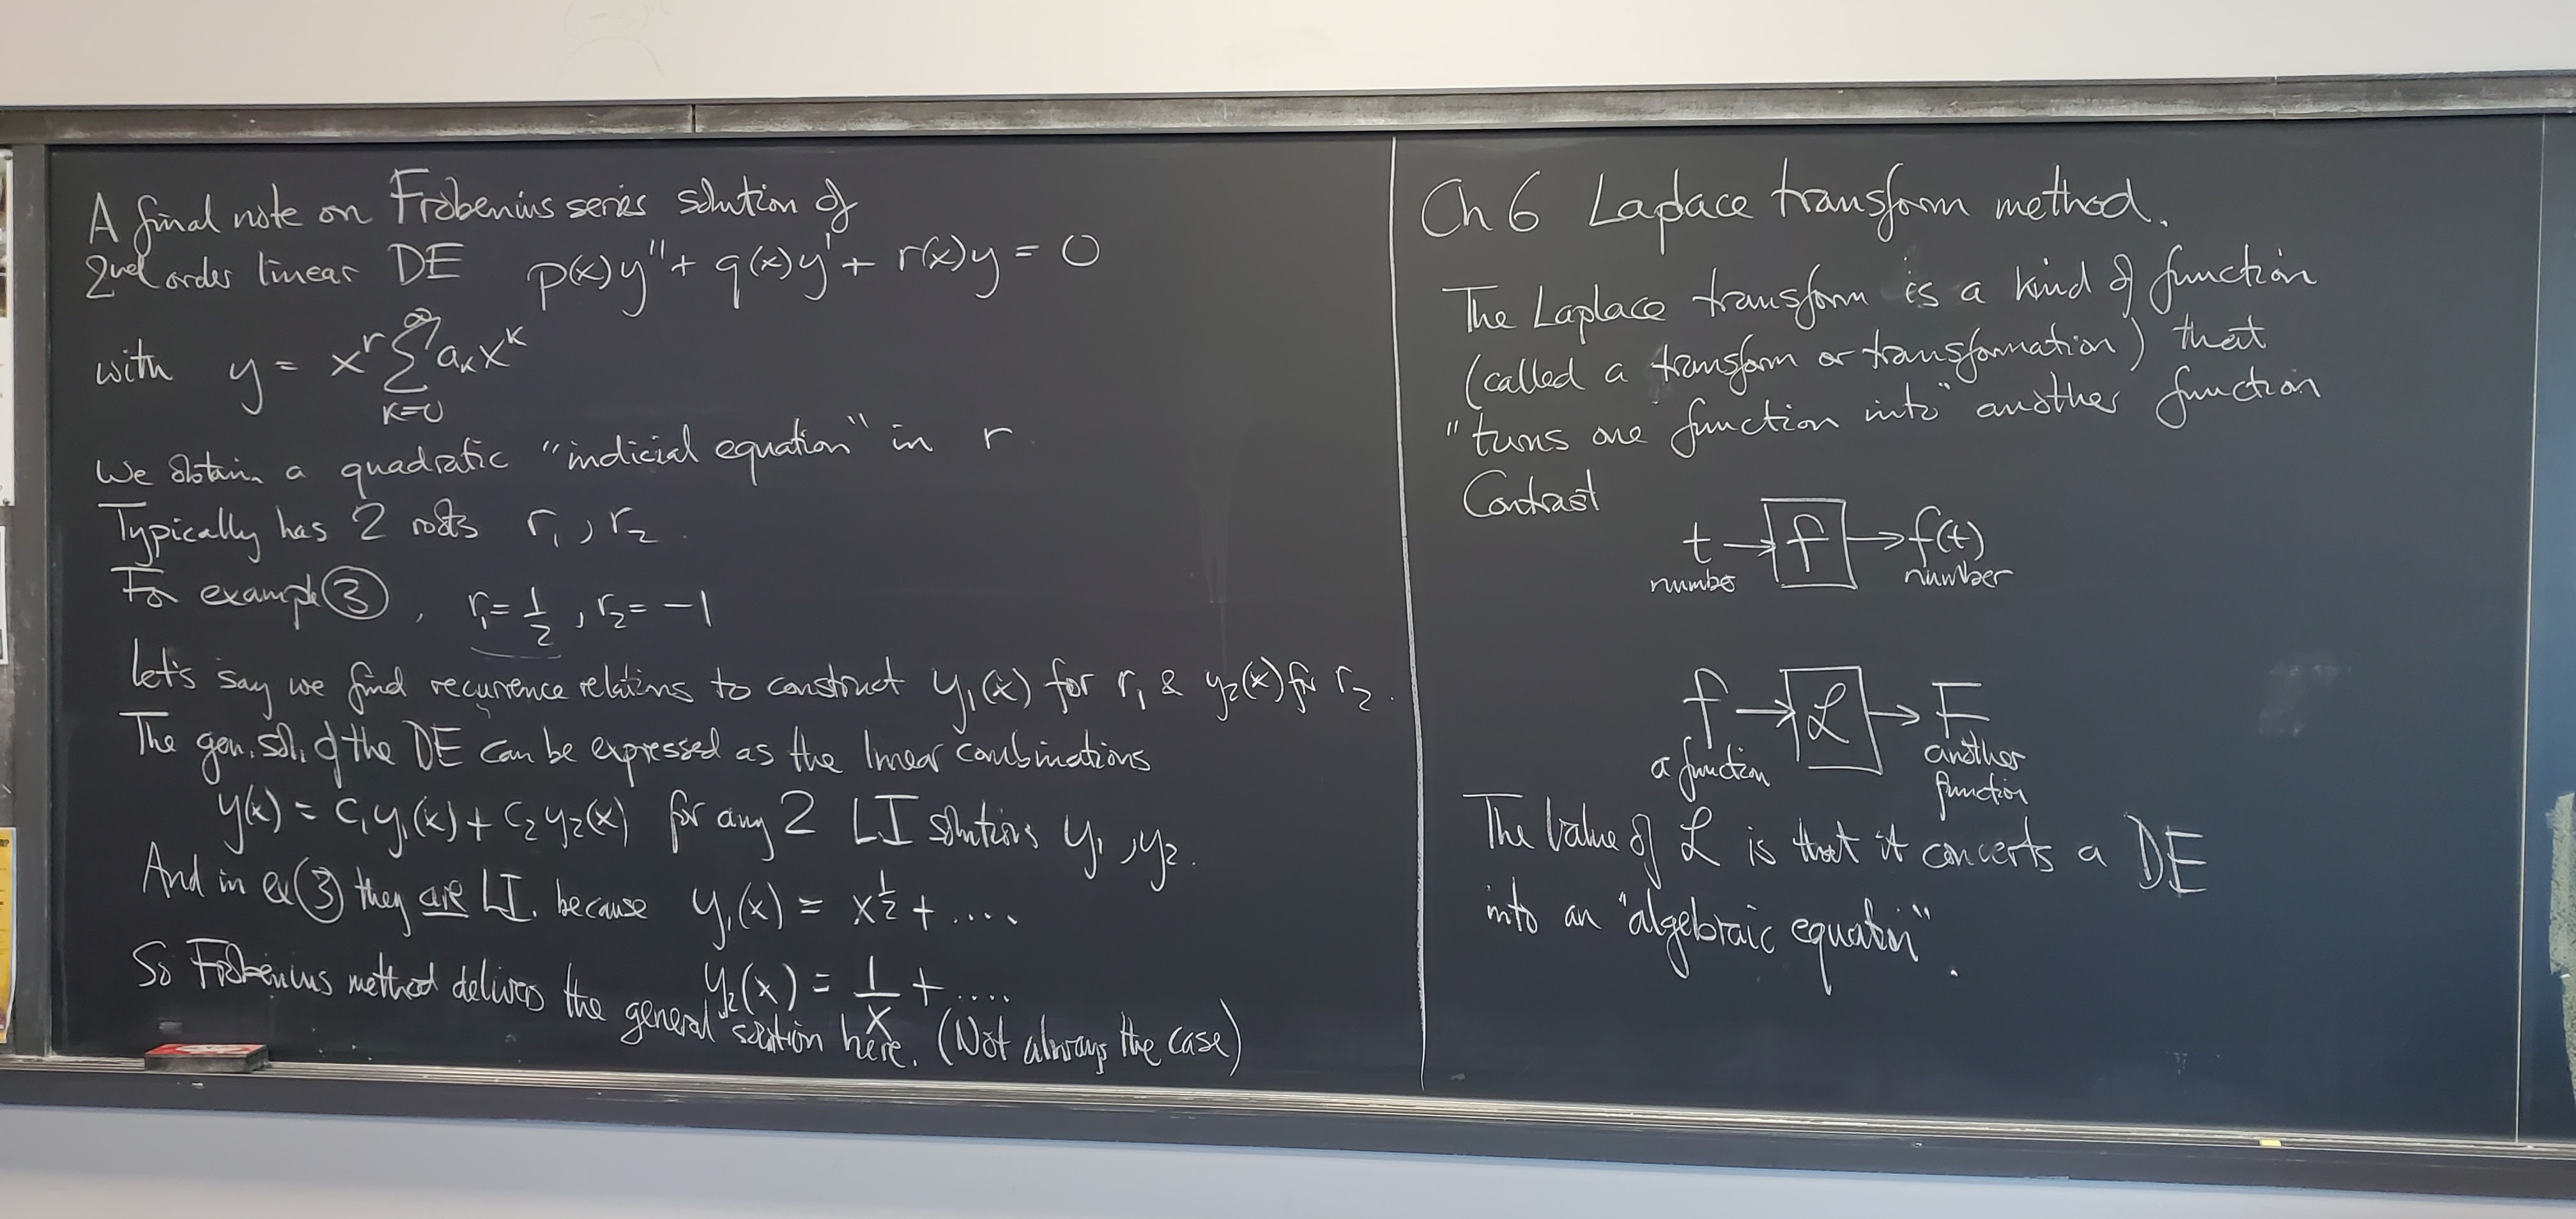 A final note on Frobenius series solution of
2nd order linear DE p(x)y" + q(x)y' + r(x)y = 0
with y = x^r ∑_{k=0}^{∞} a_k x^k
We obtain a quadratic "indicial equation" in r
Typically has 2 roots r₁, r₂.
For example ③, r₁ = 1/2, r₂ = -1
Let's say we find recurrence relations to construct y₁(x) for r₁ & y₂(x) for r₂.
The gen. sol. of the DE can be expressed as the linear combinations
y(x) = c₁y₁(x) + c₂y₂(x) for any 2 LI solutions y₁, y₂.
And in ex ③ they are LI. because y₁(x) = x^{1/2} + ....
y₂(x) = 1/x + ....
So Frobenius method delivers the general solution here. (Not always the case)
Ch 6 Laplace transform method.
The Laplace transform is a kind of function
(called a transform or transformation) that
"turns one function into" another function
Contrast
t → f → f(t)
number number
f → ℒ → F
a function another
function
The value of ℒ is that it converts a DE
into an "algebraic equation".